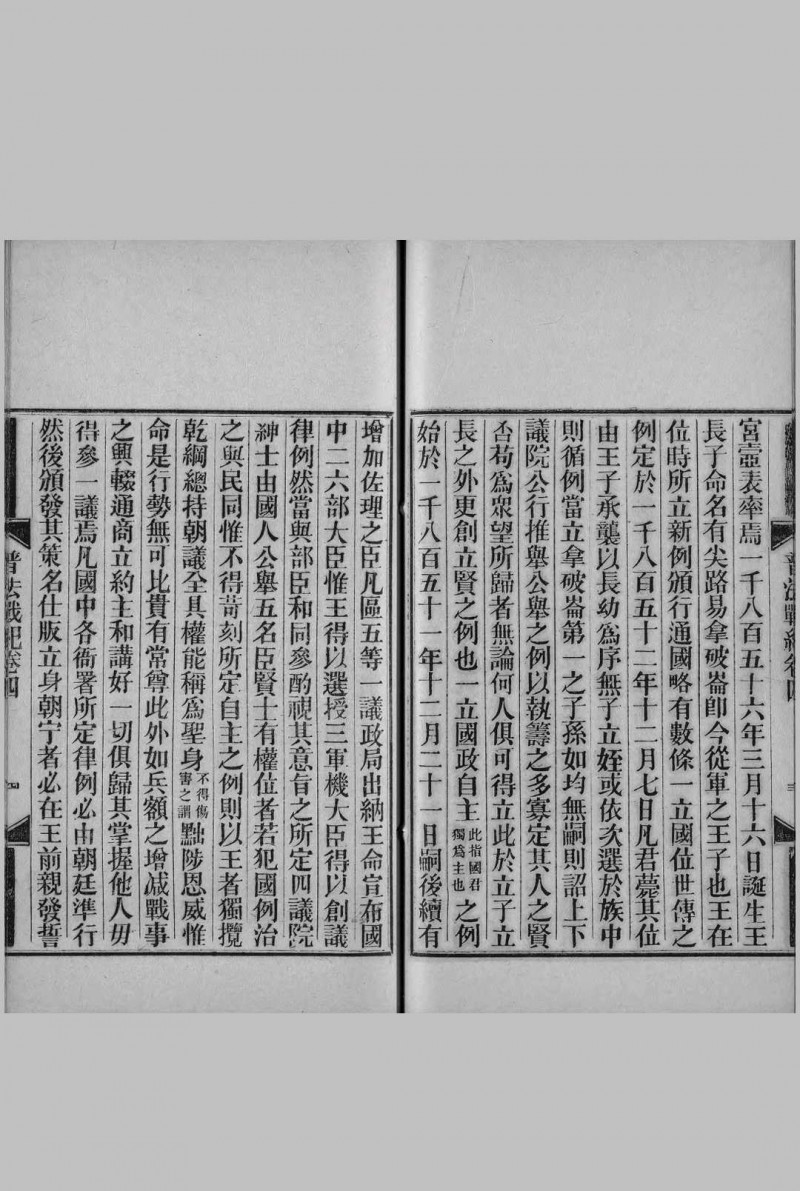 宮壼表率焉一千八百五十六年三月十六日誕生王
長子命名有尖路易拿破崙卽今從軍之王子也王在
位時所立新例頒行通國略有數條一立國位世傳之
例定於一千八百五十二年十二月七日凡君薨其位
由王子承襲以長幼爲序無子立姪或依次選於族中
則循例當立拿破崙第一之子孫如均無嗣則詔上下
議院公行推舉公舉之例以執籌之多寡定其人之賢
否苟爲眾望所歸者無論何人俱可得立此於立子立
長之外更創立賢之例也一立國政自主此指國君獨爲主也之例
始於一千八百五十一年十二月二十一日嗣後續有
普法戰紀卷四
三
增加佐理之臣凡區五等一議政局出納王命宣布國
中二六部大臣惟王得以選授三軍機大臣得以創議
律例然當與部臣和同參酌視其意旨之所定四議院
紳士由國人公舉五名臣賢士有權位者若犯國例治
之與民同惟不得苛刻所定自主之例則以王者獨攬
乾綱總持朝議全具權能稱爲聖身不得傷害之謂黜陟恩威惟
命是行勢無可比貴有常尊此外如兵額之增减戰事
之興輟通商立約主和講好一切俱歸其掌握他人毋
得參一議焉凡國中各衙署所定律例必由朝廷準行
然後頒發其策名仕版立身朝宁者必在王前親發誓
普法戰紀卷四
四